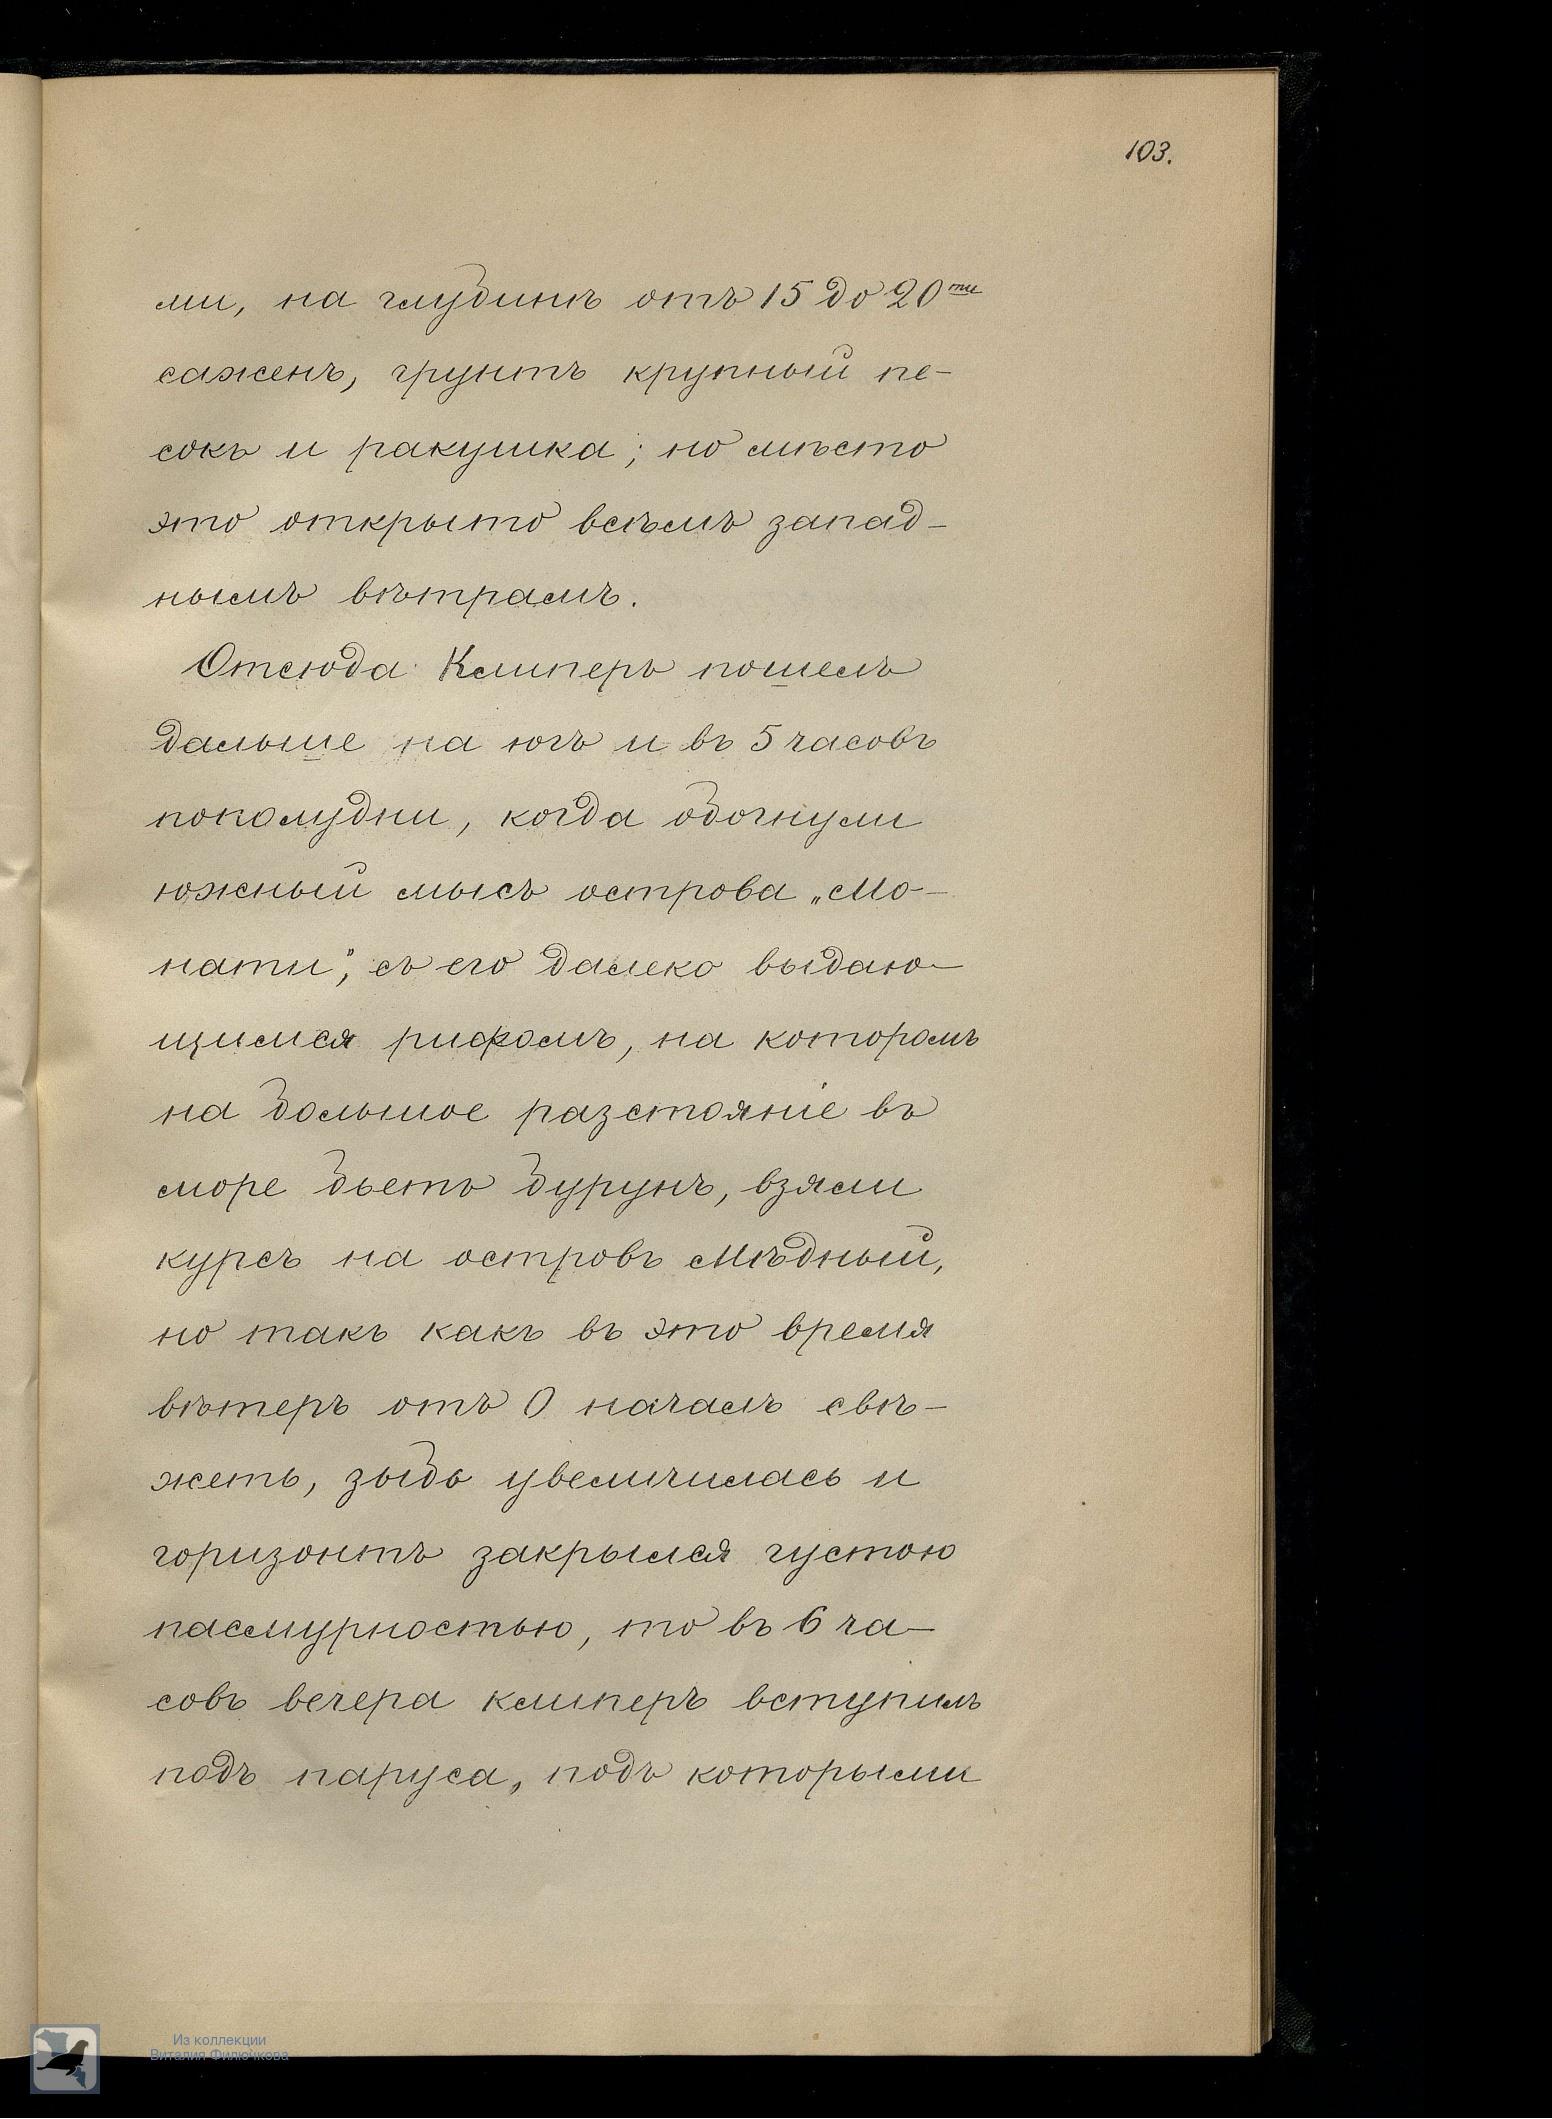 103.
ми, на глубинѣ отъ 15 до 20ти
сажень, грунтъ крупный пе-
сокъ и ракушка; но мѣсто
это открыто всѣмъ запад-
нымъ вѣтрамъ.
Отсюда Клиперъ пошелъ
дальше на югъ и въ 5 часовъ
пополудни, когда обогнули
южный мысъ острова „Мо-
нати", съ его далеко выдаю-
щимся рифомъ, на которомъ
на большое разстояніе въ
море бьетъ бурунъ, взяли
курсъ на островъ Мѣдный,
но такъ какъ въ это время
вѣтеръ отъ O началъ свѣ-
жеть, зыбь увеличилась и
горизонтъ закрылся густою
пасмурностью, то въ 6 ча-
совъ вечера клиперъ вступилъ
подъ паруса, подъ которыми
Из коллекции
Виталия Филючкова